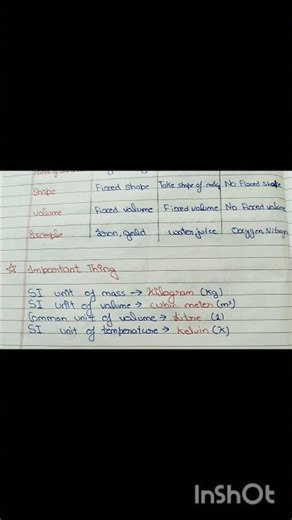 Shape Fixed shape Take shape of No Fixed Shape
Volume Fixed volume Fixed volume No Fixed volume
Example Iron, gold water, juice Oxygen, Nitrogen
☆ Important Thing
SI unit of mass → Kilogram (Kg)
SI unit of volume → cubic meter (m³)
Common unit of volume → Litre (l)
SI unit of temperature → kelvin (K)
InShOt